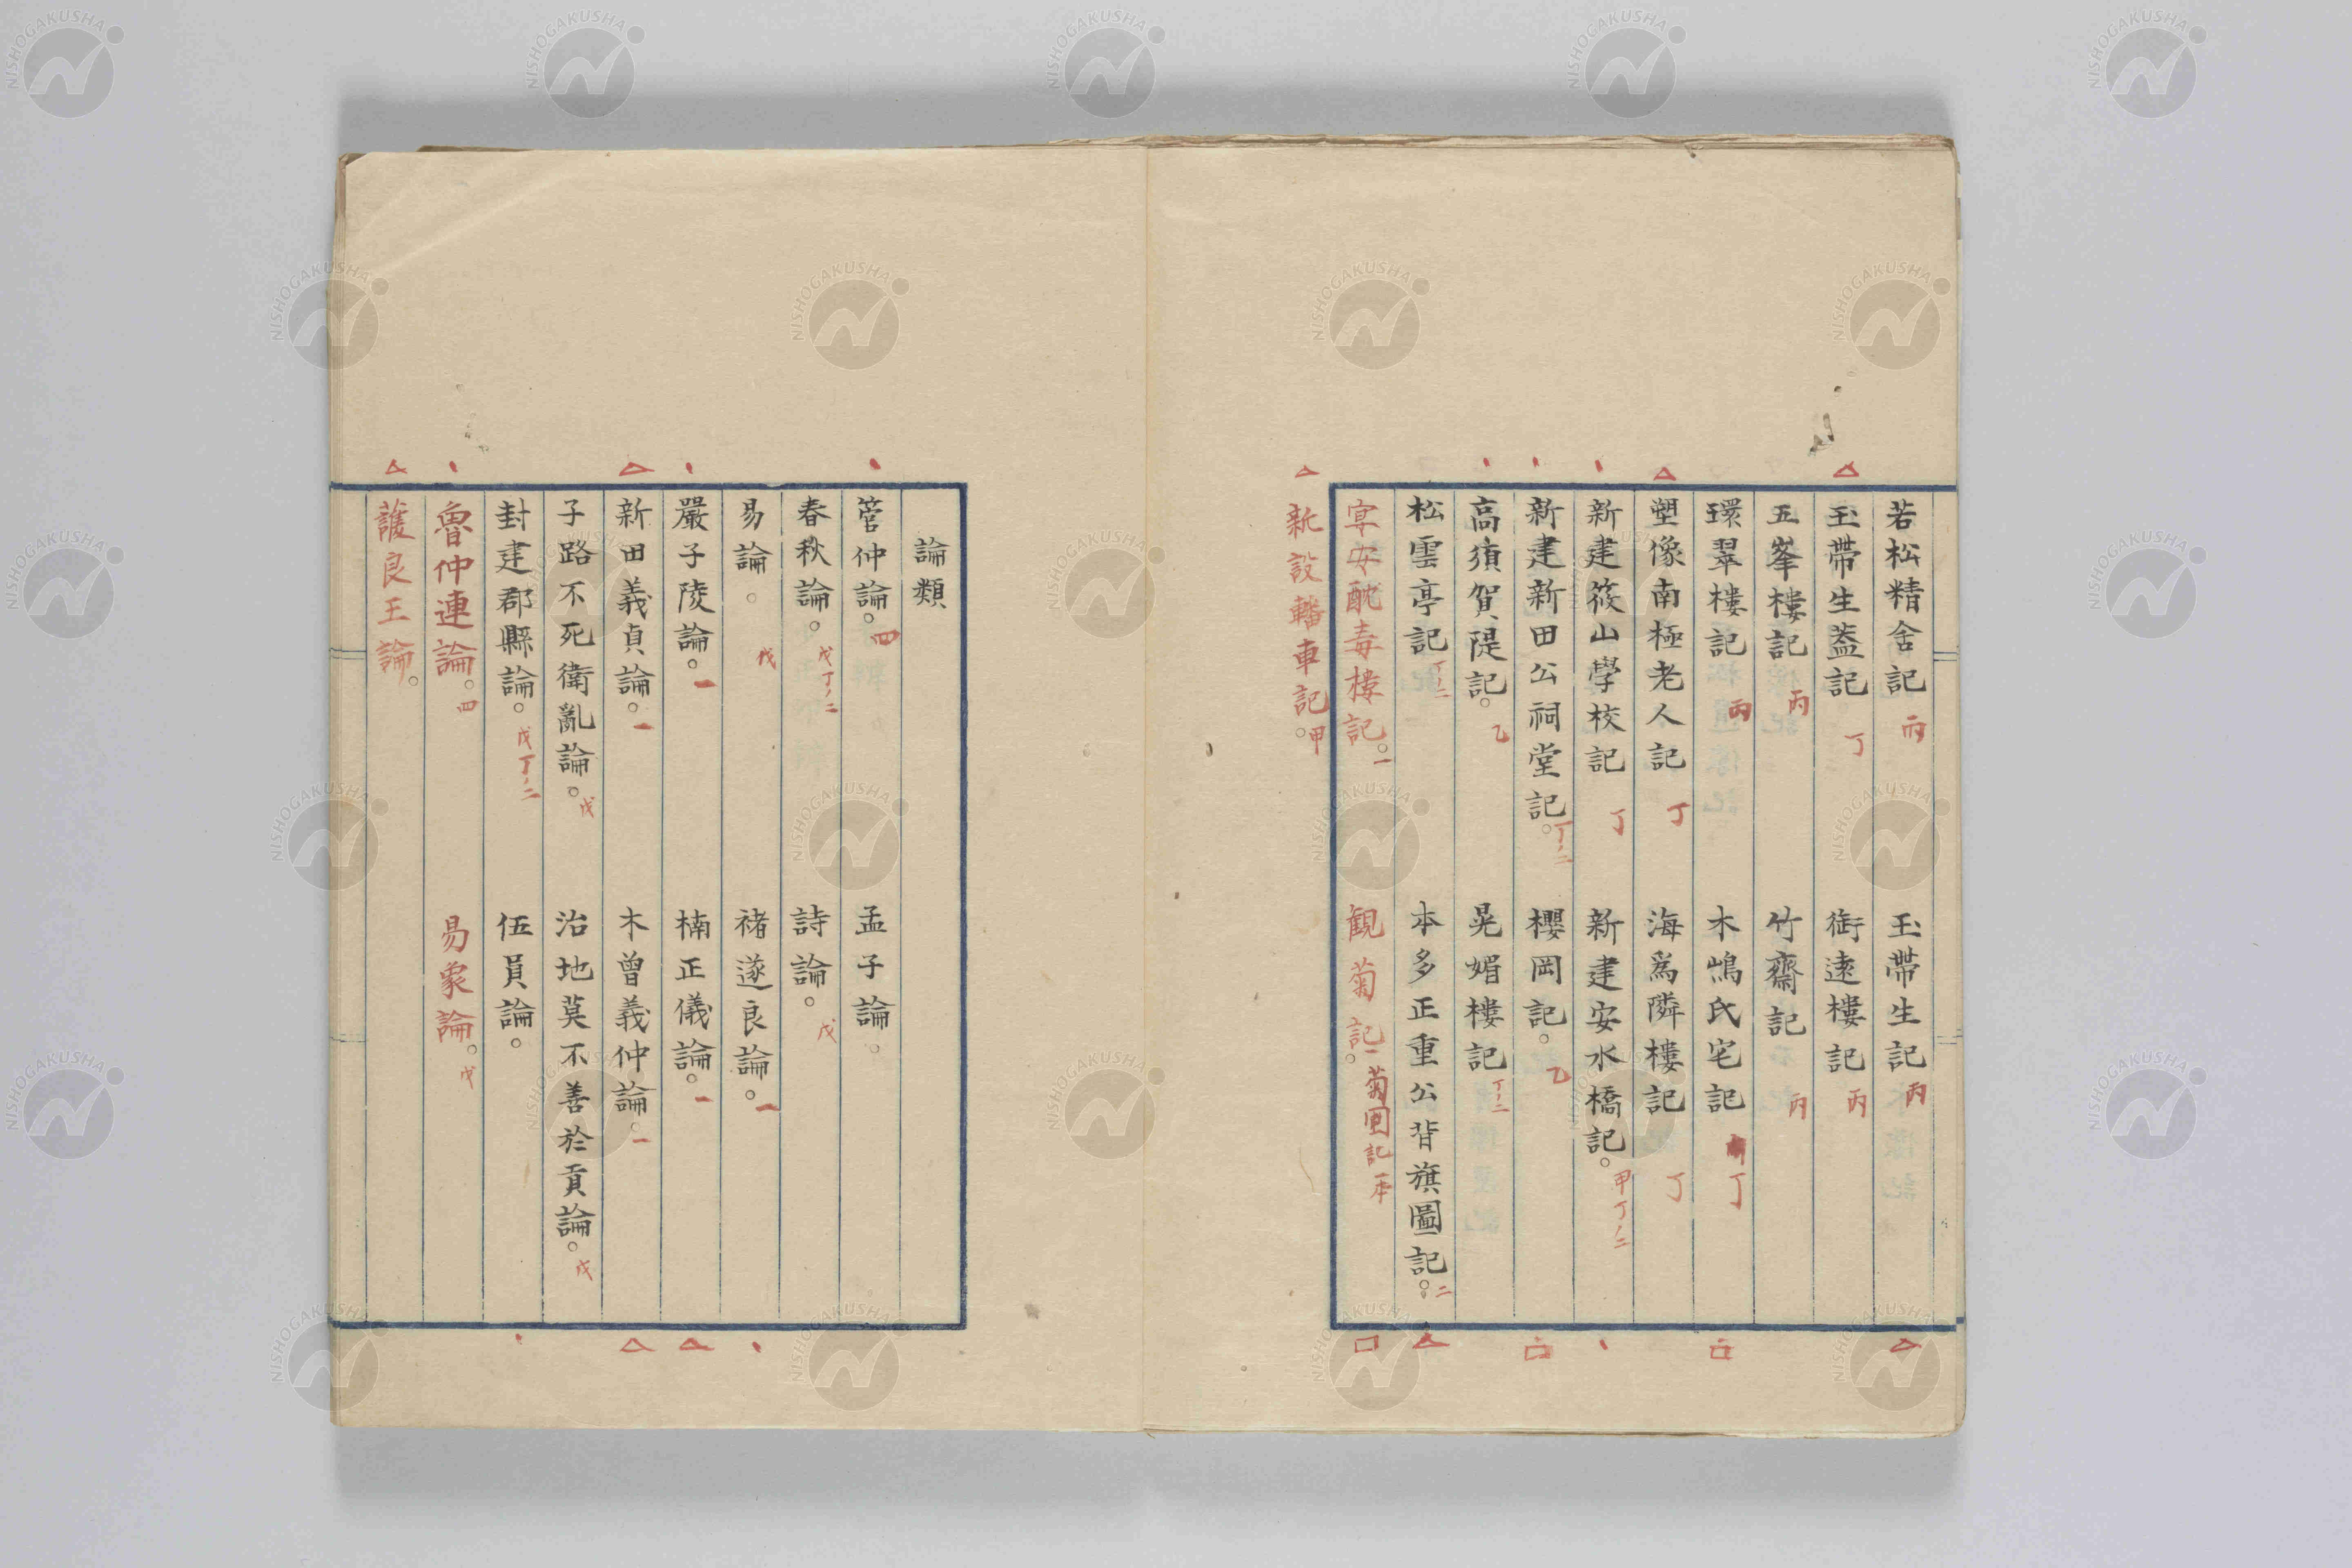 若松精舍記 丙 玉帶生記 丙
玉帶生蓋記 丁 衘遠樓記 丙
五峯樓記 丙 竹齋記 丙
環翠樓記 丙 木嶋氏宅記 丁
塑像南極老人記 丁 海爲隣樓記 丁
新建筱山學校記 丁 新建安水橋記。 甲丁ノ二
新建新田公祠堂記。 丁ノ二 櫻岡記。 乙
高須賀隄記。 乙 晃媚樓記 丁ノ二
松雲亭記 丁ノ二 本多正重公背旗圖記。 二
宴安酖毒樓記。 一 観菊記。 一菊圃記一本
新設轓車記。 甲
論類
管仲論。 四 孟子論。
春秋論。 戊丁ノ二 詩論。 戊
易論。 戊 褚遂良論。 一
嚴子陵論。 一 楠正儀論。 一
新田義貞論。 一 木曾義仲論。 一
子路不死衛亂論。 戊 治地莫不善於貢論。 戊
封建郡縣論。 戊丁ノ二 伍員論。
魯仲連論。 四 易象論。 戊
護良王論。
NISHOGAKUSHA